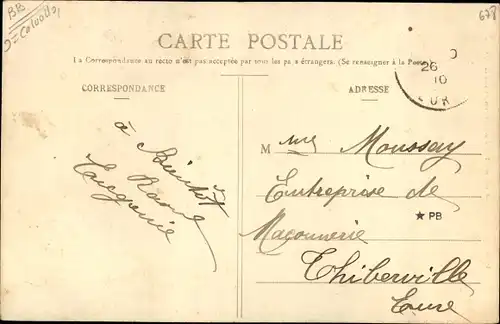 BB
D=Calvados
678
CARTE POSTALE
La Correspondance au recto n'est pas acceptée par tous les pays étrangers. (Se renseigner à la Poste)
CORRESPONDANCE
ADRESSE
26
10
à Bientôt
M me Moussay
Entreprise de
★ PB
Maçonnerie
Thiberville
Eure